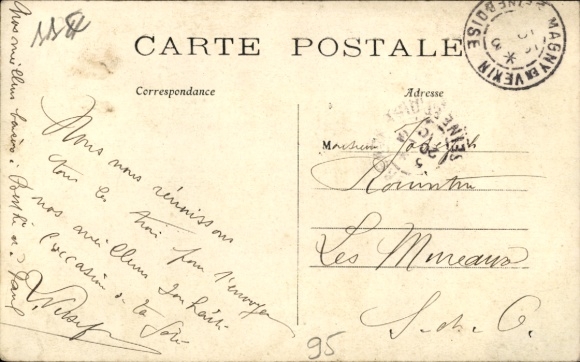 CARTE POSTALE
Correspondance
Adresse
MAGNY EN VEXIN
SEINE & OISE
Nous nous réunissons
tous les trois pour t'envoyer
nos meilleurs souhaits
l'occasion de ta fête
Nos meilleurs baisers
Monsieur Joseph
Les Mureaux
S. et O.
95